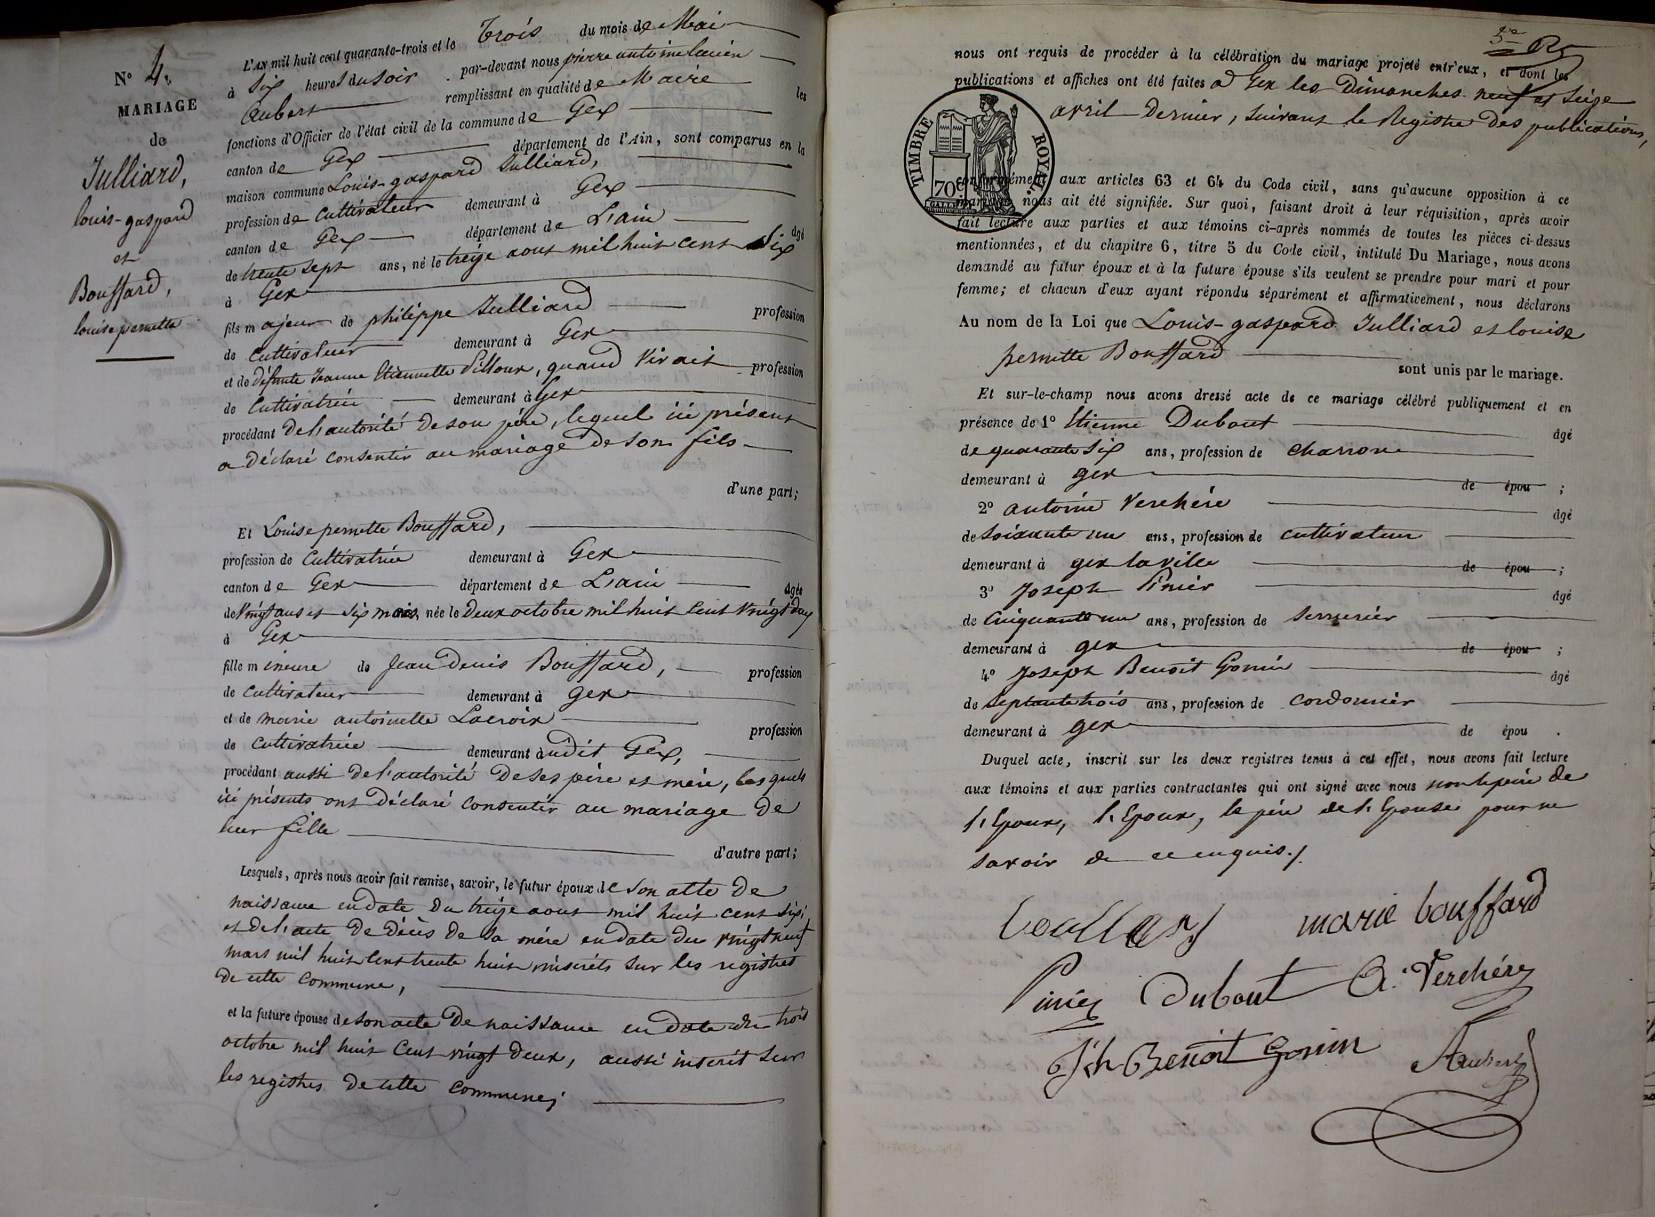 N° 4.
MARIAGE
de
Julliard,
louis-gaspard
et
Bouffard,
louise pernette
L'AN mil huit cent quarante-trois et le Trois du mois de Mai
à Six heures du Soir par-devant nous pierre antoine lucien
Aubert remplissant en qualité de Maire les
fonctions d'Officier de l'état civil de la commune de Gex
canton de Gex département de l'Ain, sont comparus en la
maison commune Louis-gaspard Julliard,
profession de cultivateur demeurant à Gex
canton de Gex département de L'ain âgé
de trente sept ans, né le treize aout mil huit cent Six
à Gex
fils majeur de philippe Julliard profession
de Cultivateur demeurant à Gex
et de défunte Jeanne Etiennette , quand Vivait profession
de Cultivatrice demeurant à Gex
procédant de l'autorité de son père, lequel ici présent
a déclaré consentir au mariage de son fils
d'une part;
Et Louise pernette Bouffard,
profession de Cultivatrice demeurant à Gex
canton de Gex département de L'ain âgée
de Vingt ans et Six mois, née le deux octobre mil huit Cent Vingt deux
à Gex
fille mineure de Jean Denis Bouffard, profession
de cultivateur demeurant à gex
et de marie antoinette Lacroix profession
de cultivatrice demeurant à udit Gex,
procédant aussi de l'autorité de ses père et mère, lesquels
ici présents ont déclaré consentir au mariage de
leur fille
d'autre part;
Lesquels, après nous avoir fait remise, savoir, le futur époux de son acte de
naissance en date du treize aout mil huit cent Six,
et de l'acte de décès de sa mère en date du vingt neuf
mars mil huit Cent trente huit inscrits sur les registres
de cette commune,
et la future épouse de son acte de naissance en date du trois
octobre mil huit Cent vingt deux, aussi inscrit sur
les registres de cette commune;
nous ont requis de procéder à la célébration du mariage projeté entr'eux, et dont les
publications et affiches ont été faites à Gex les Dimanches neuf et Seize
avril dernier, suivant le Registre des publications,
TIMBRE ROYAL.
70c
conformément aux articles 63 et 64 du Code civil, sans qu'aucune opposition à ce
mariage nous ait été signifiée. Sur quoi, faisant droit à leur réquisition, après avoir
fait lecture aux parties et aux témoins ci-après nommés de toutes les pièces ci-dessus
mentionnées, et du chapitre 6, titre 5 du Code civil, intitulé Du Mariage, nous avons
demandé au futur époux et à la future épouse s'ils veulent se prendre pour mari et pour
femme; et chacun d'eux ayant répondu séparément et affirmativement, nous déclarons
Au nom de la Loi que Louis-gaspard Julliard et louise
pernette Bouffard
sont unis par le mariage.
Et sur-le-champ nous avons dressé acte de ce mariage célébré publiquement et en
présence de 1° Etienne Dubout âgé
de quarante Six ans, profession de charron
demeurant à gex de épou ;
2° antoine Verchère âgé
de Soixante un ans, profession de cultivateur
demeurant à gex la ville de épou ;
3° Joseph Pinier âgé
de Cinquante un ans, profession de serrurier
demeurant à gex de épou ;
4° Joseph Benoit Gonin âgé
de septante trois ans, profession de cordonnier
demeurant à gex de épou .
Duquel acte, inscrit sur les deux registres tenus à cet effet, nous avons fait lecture
aux témoins et aux parties contractantes qui ont signé avec nous non le père de
l'Epoux, l'Epoux, le père de l'Epouse pour ne
savoir de ce enquis./.
marie bouffard
Pinier Dubout A. Verchère
Jh Benoit Gonin Aubert